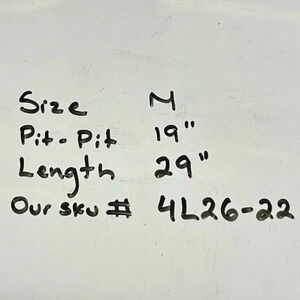 Size M
Pit-Pit 19"
Length 29"
Our sku # 4L26-22